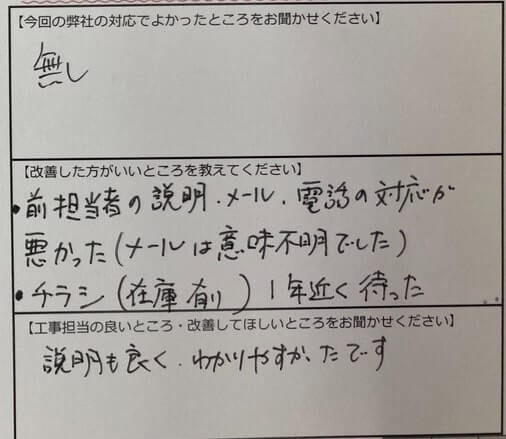 【今回の弊社の対応でよかったところをお聞かせください】
無し
【改善した方がいいところを教えてください】
・前担当者の説明・メール・電話の対応が
悪かった(メールは意味不明でした)
・チラシ(在庫有り)1年近く待った
【工事担当の良いところ・改善してほしいところをお聞かせください】
説明も良く、わかりやすかったです